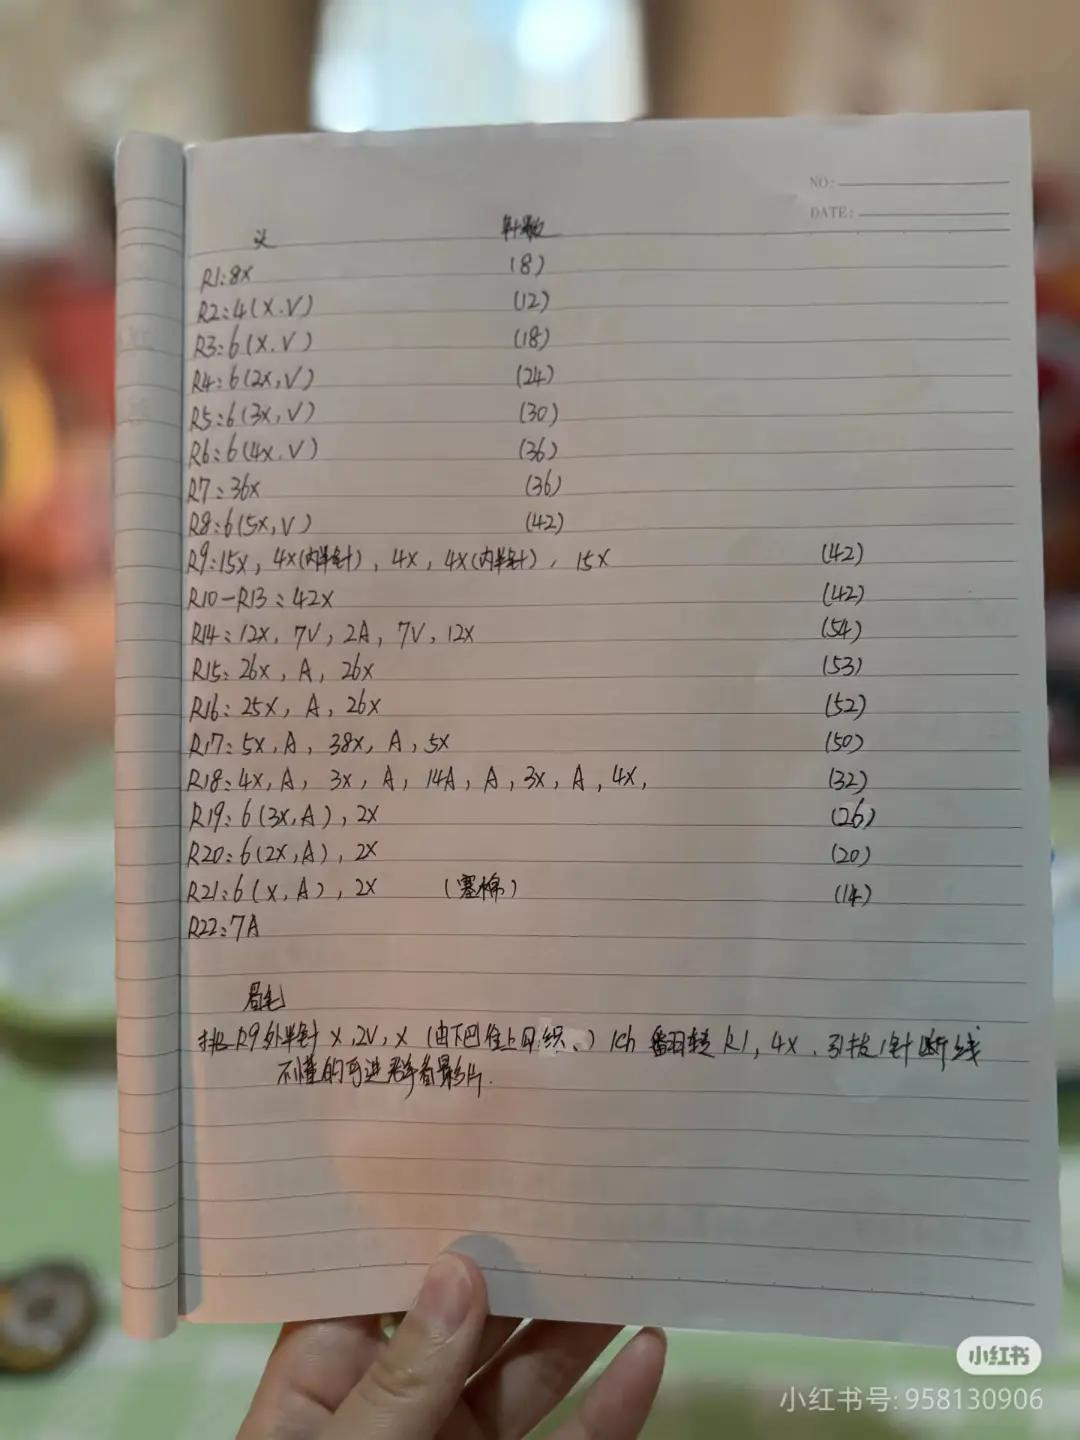 NO:
DATE:
头 针数
R1:8X (8)
R2:4(X.V) (12)
R3:6(X.V) (18)
R4:6(2X,V) (24)
R5:6(3X,V) (30)
R6:6(4X.V) (36)
R7:36X (36)
R8:6(5X,V) (42)
R9:15X, 4X(内半针), 4X, 4X(内半针), 15X (42)
R10-R13:42X (42)
R14:12X, 7V, 2A, 7V, 12X (54)
R15:26X, A, 26X (53)
R16:25X, A, 26X (52)
R17:5X,A, 38X, A,5X (50)
R18:4X,A, 3X, A, 14A, A,3X, A,4X, (32)
R19:6(3X,A),2X (26)
R20:6(2X,A),2X (20)
R21:6(X,A),2X (塞棉) (14)
R22:7A
眉毛
挑R9外半针 X,2V,X (由下巴往上勾织、) 1ch 翻转 R1,4X.引拔1针断线
不懂的可进群看影片.
小红书
小红书号:958130906